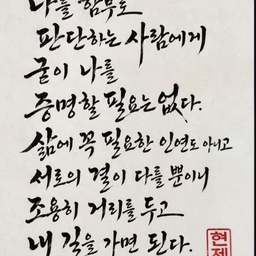 나를 함부로
판단하는 사람에게
굳이 나를
증명할 필요는 없다.
삶에 꼭 필요한 인연도 아니고
서로의 결이 다를 뿐이니
조용히 거리를 두고
내 길을 가면 된다.
현제